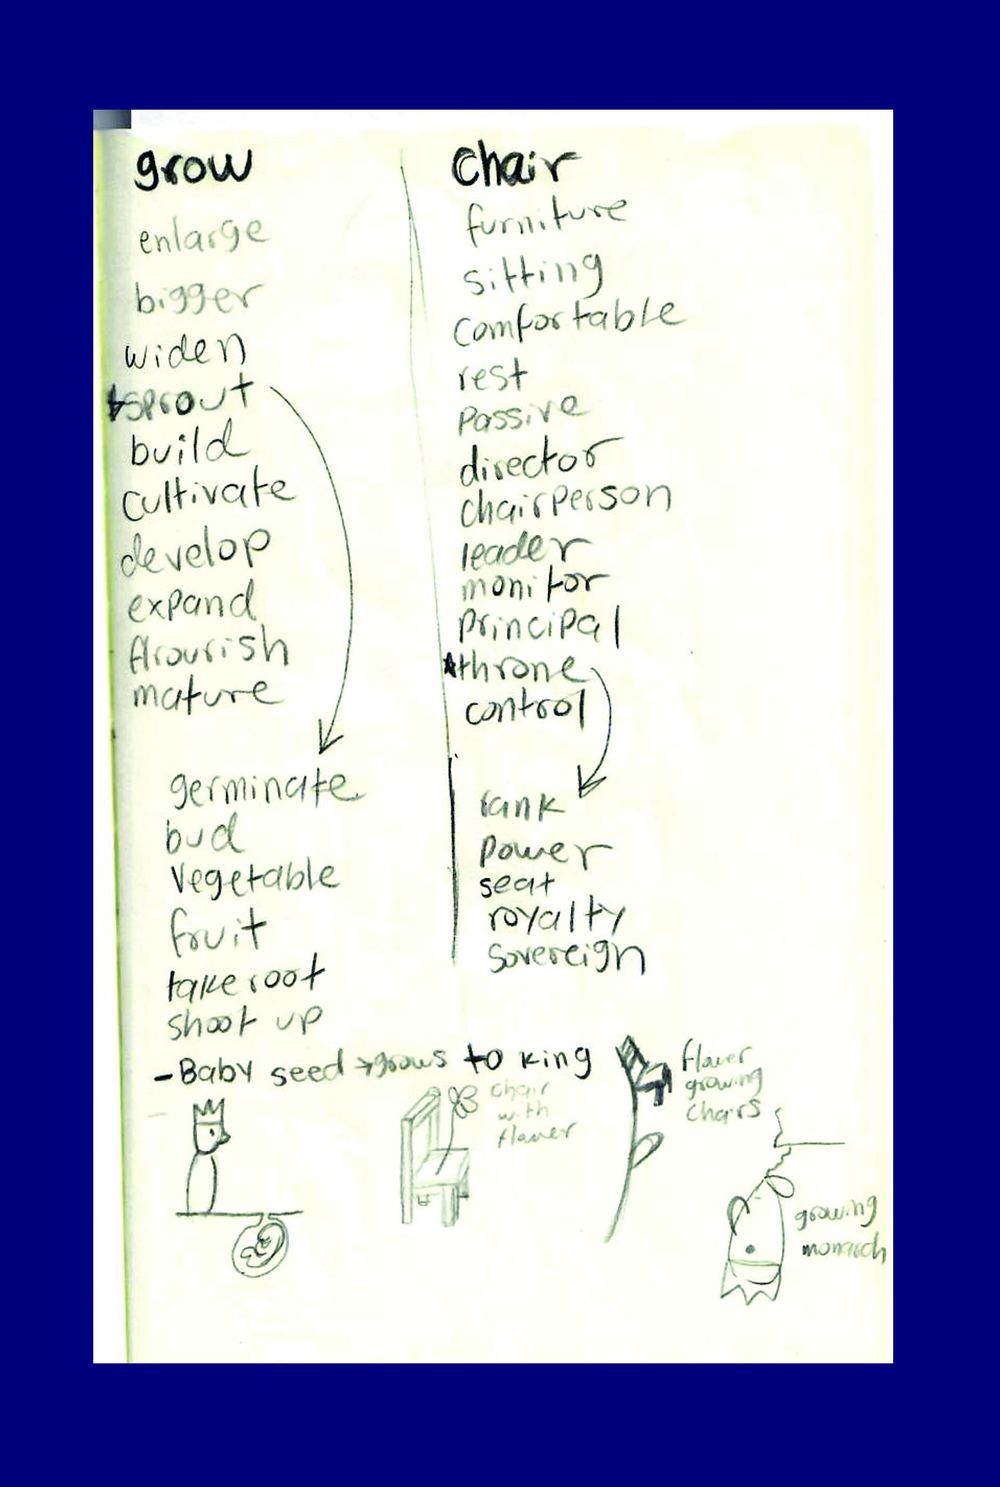 grow
enlarge
bigger
widen
sprout
build
cultivate
develop
expand
flrourish
mature
germinate
bud
vegetable
fruit
take root
shoot up
chair
furniture
sitting
comfortable
rest
passive
director
chairperson
leader
monitor
principal
throne
control
rank
power
seat
royalty
sovereign
-Baby seed → grows to king
chair
with
flower
flower
growing
chairs
growing
monarch